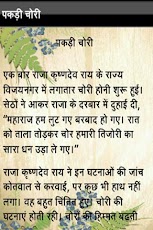 पकड़ी चोरी
पकड़ी चोरी
एक बार राजा कृष्णदेव राय के राज्य
विजयनगर में लगातार चोरी होनी शुरू हुई।
सेठों ने आकर राजा के दरबार में दुहाई दी,
"महाराज हम लुट गए बरबाद हो गए। रात
को ताला तोड़कर चोर हमारी तिजोरी का
सारा धन उड़ा ले गए।"
राजा कृष्णदेव राय ने इन घटनाओं की जांच
कोतवाल से करवाई, पर कुछ भी हाथ नहीं
लगा। वह बहुत चिंतित हुए। चोरी की
घटनाएं होती रही। चोरों की हिम्मत बढ़ती